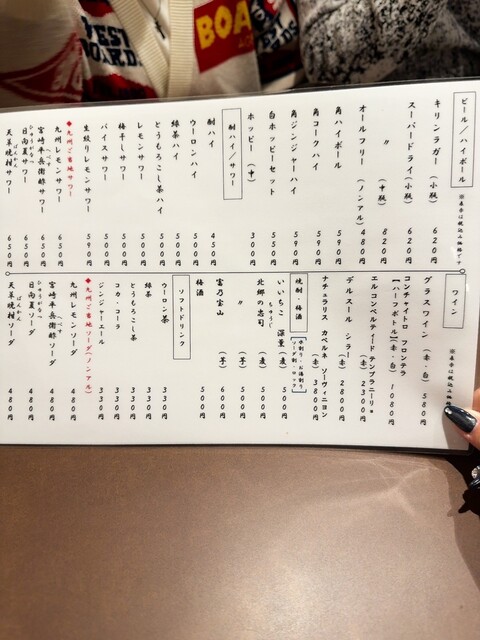 BOA
BOARDS
ビール/ハイボール ※表示は税込み価格です
キリンラガー (小瓶) 620円
スーパードライ (小瓶) 620円
〃 (中瓶) 820円
オールフリー (ノンアル) 480円
角ハイボール 550円
角コークハイ 590円
角ジンジャーハイ 590円
白ホッピーセット 550円
ホッピー (中) 300円
酎ハイ/サワー
酎ハイ 450円
ウーロンハイ 500円
緑茶ハイ 500円
とうもろこし茶ハイ 500円
レモンサワー 500円
梅干しサワー 550円
バイスサワー 500円
生絞りレモンサワー 590円
◆九州ご当地サワー
九州レモンサワー 650円
宮崎平兵衛酢サワー 650円
へべす
日向夏サワー 650円
ひゅうがなつ
天草晩柑サワー 650円
ばんかん
ワイン ※表示は税込み価格
グラスワイン (赤・白) 580円
コンチャイトロ フロンテラ
【ハーフボトル】(赤・白) 1080円
エルコンベルティード テンプラニーリョ
(赤) 2300円
デルスール シラー (赤) 2800円
ナチュラリス カベルネ ソーヴィニヨン
(赤) 3800円
焼酎・梅酒 【水割り・お湯割り ソーダ割・ロック】
いいちこ 深薫 (麦) 500円
北郷の忠司 (麦) 500円
ちゅうじ
〃 (芋) 600円
富乃宝山 (芋) 600円
梅酒 500円
ソフトドリンク
ウーロン茶 330円
緑茶 330円
とうもろこし茶 330円
コカ・コーラ 330円
ジンジャーエール 330円
◆九州ご当地ソーダ(ノンアル)
九州レモンソーダ 480円
宮崎平兵衛酢ソーダ 480円
へべす
日向夏ソーダ 480円
ひゅうがなつ
天草晩柑ソーダ 480円
ばんかん